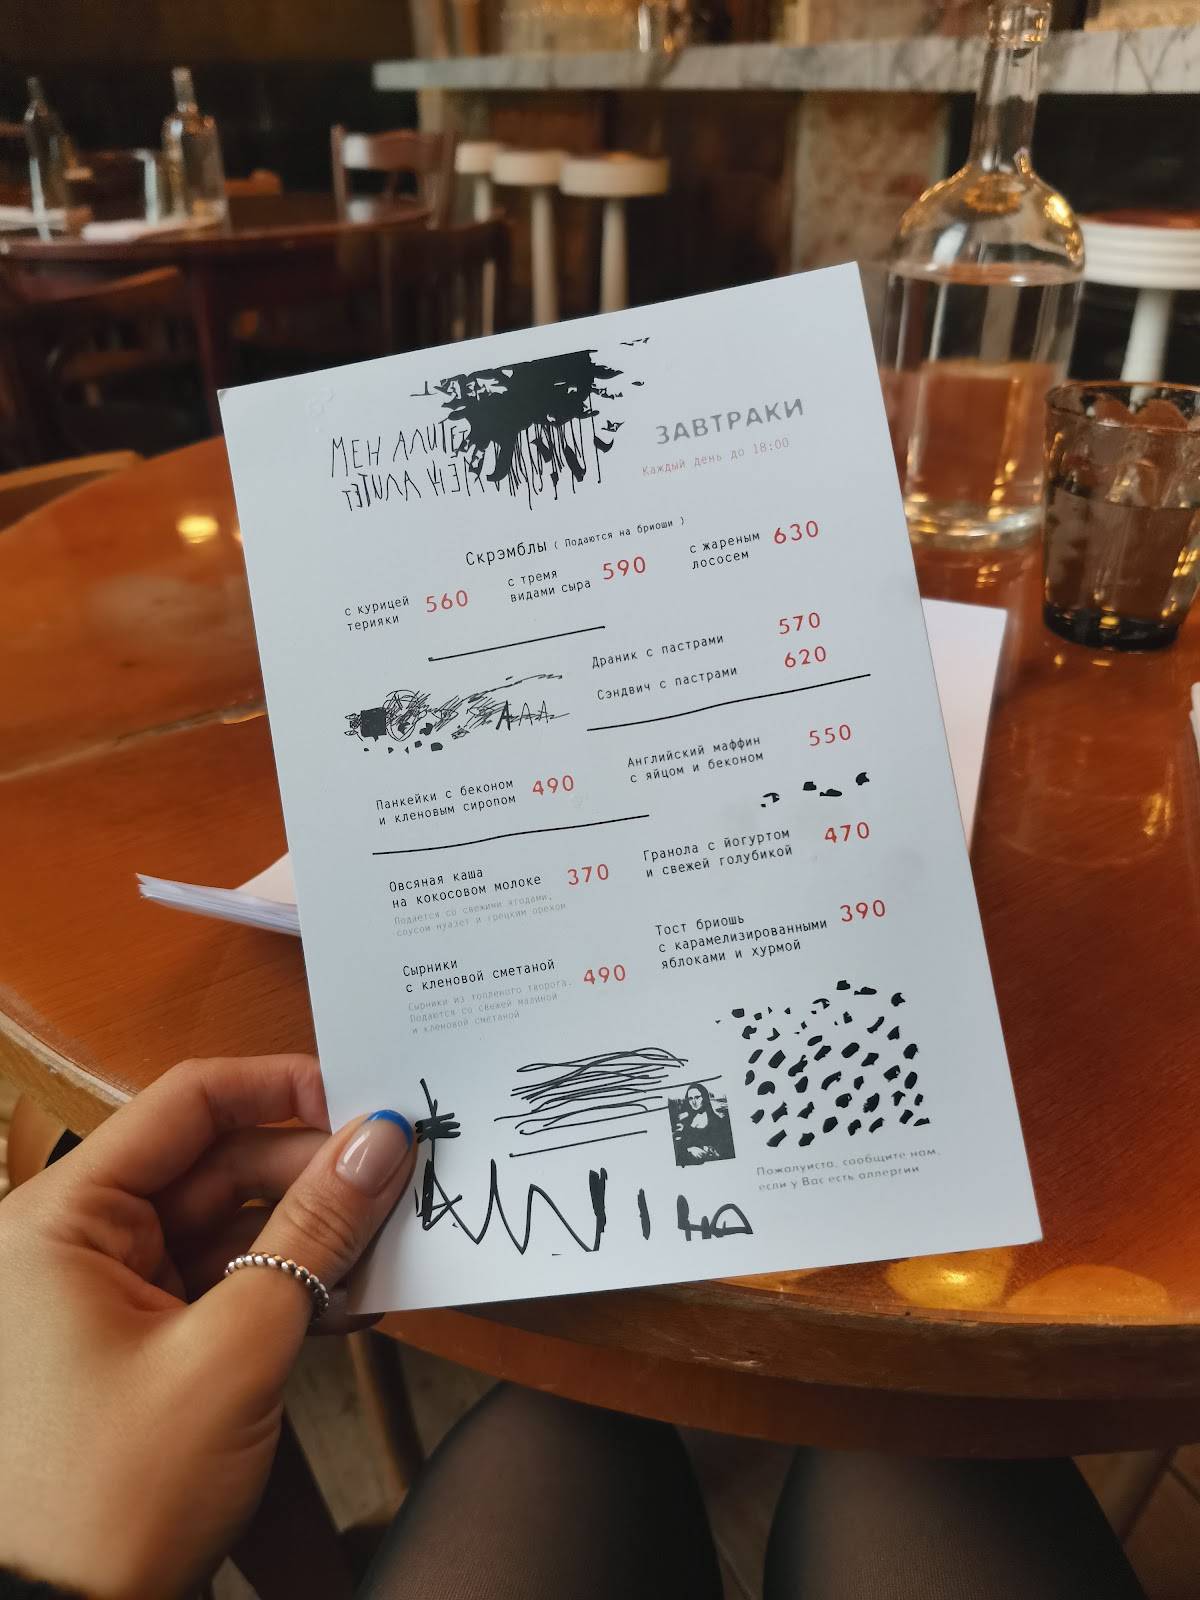 МЕН АЛИТЕТ
ЗАВТРАКИ
Каждый день до 18:00
Скрэмблы ( Подаются на бриоши )
с курицей
терияки
560
с тремя
видами сыра
590
с жареным
лососем
630
Драник с пастрами
570
Сэндвич с пастрами
620
ААА
Панкейки с беконом
и кленовым сиропом
490
Английский маффин
с яйцом и беконом
550
Овсяная каша
на кокосовом молоке
370
Подается со свежими ягодами,
соусом нуазет и грецким орехом
Гранола с йогуртом
и свежей голубикой
470
Сырники
с кленовой сметаной
490
Сырники из топленого творога.
Подаются со свежей малиной
и кленовой сметаной
Тост бриошь
с карамелизированными
яблоками и хурмой
390
Пожалуйста, сообщите нам,
если у Вас есть аллергии